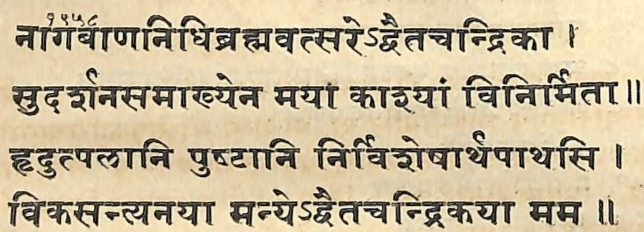 १९५८
नागबाणनिधिब्रह्मवत्सरेऽद्वैतचन्द्रिका ।
सुदर्शनसमाख्येन मया काश्यां विनिर्मिता ॥
हृदुत्पलानि पुष्टानि निर्विशेषार्थपाथसि ।
विकसन्त्यनया मन्येऽद्वैतचन्द्रिकया मम ॥